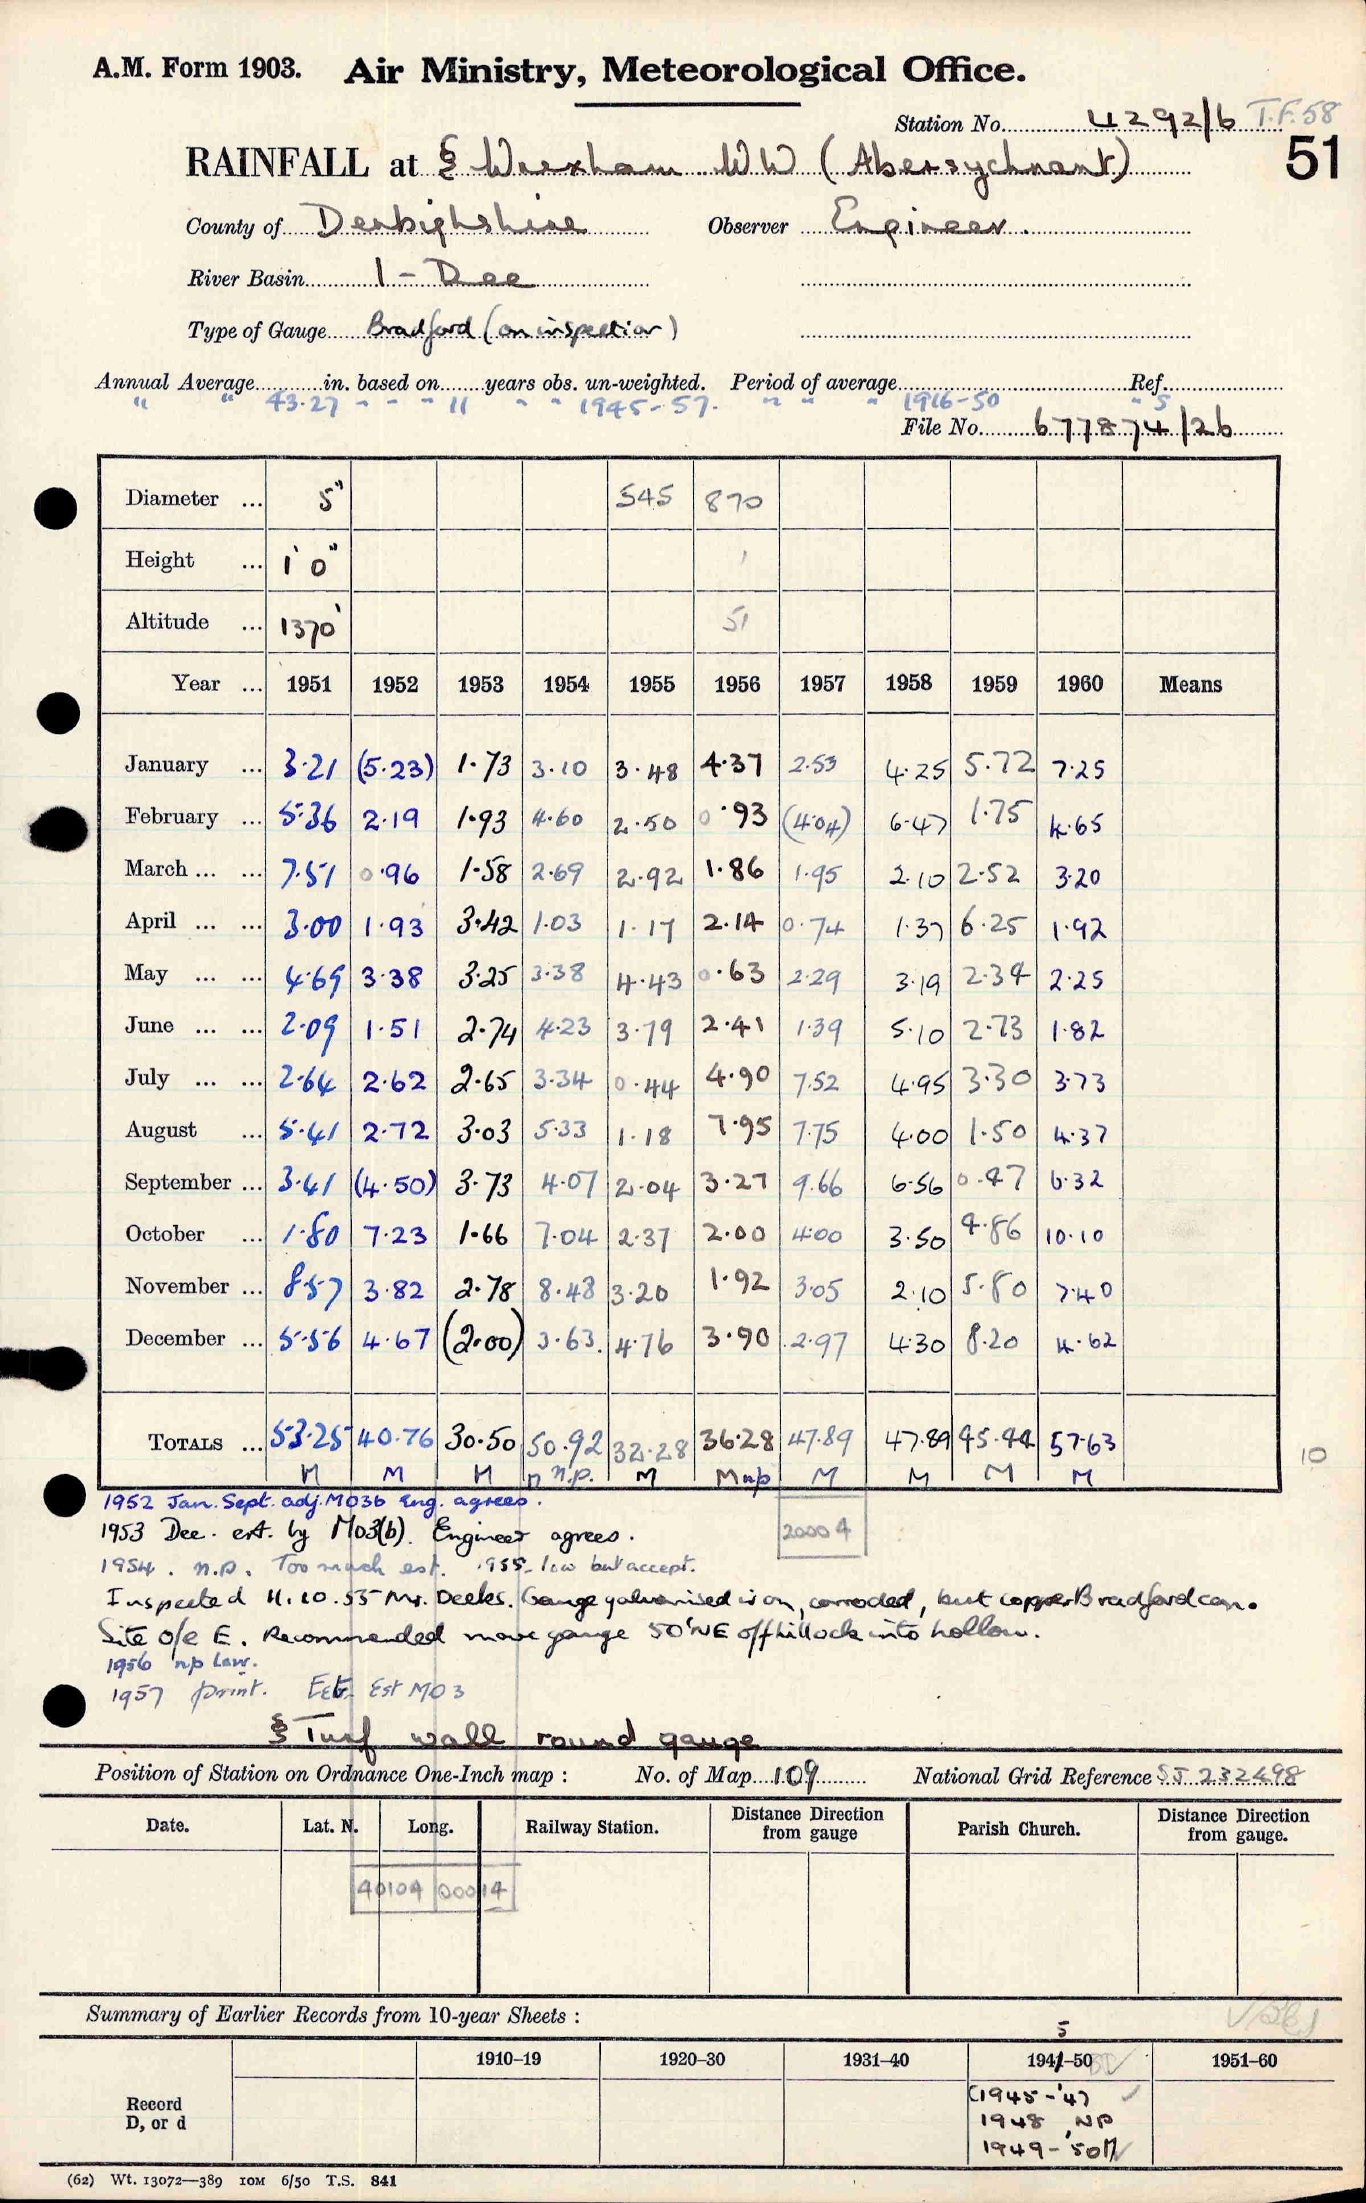 A.M. Form 1903. Air Ministry, Meteorological Office.
Station No. 4292/6 T.F.58
51
RAINFALL at § Wrexham WW (Abersychnant)
County of Denbighshire Observer Engineer.
River Basin 1 - Dee
Type of Gauge Bradford (on inspection)
Annual Average in. based on years obs. un-weighted. Period of average Ref.
" " 43.27 " " " 11 " " 1945-57. " " " 1916-50 " 5
File No. 677874/26
Diameter ... 5" 545 870
Height ... 1' 0" 1
Altitude ... 1370' 51
Year ... 1951 1952 1953 1954 1955 1956 1957 1958 1959 1960 Means
January ... 3.21 (5.23) 1.73 3.10 3.48 4.37 2.53 4.25 5.72 7.25
February ... 5.36 2.19 1.93 4.60 2.50 0.93 (4.04) 6.47 1.75 4.65
March ... ... 7.51 0.96 1.58 2.69 2.92 1.86 1.95 2.10 2.52 3.20
April ... ... 3.00 1.93 3.42 1.03 1.17 2.14 0.74 1.37 6.25 1.92
May ... ... 4.69 3.38 3.25 3.38 4.43 0.63 2.29 3.19 2.34 2.25
June ... ... 2.09 1.51 2.74 4.23 3.79 2.41 1.39 5.10 2.73 1.82
July ... ... 2.64 2.62 2.65 3.34 0.44 4.90 7.52 4.95 3.30 3.73
August ... 5.41 2.72 3.03 5.33 1.18 7.95 7.75 4.00 1.50 4.37
September ... 3.41 (4.50) 3.73 4.07 2.04 3.27 9.66 6.56 0.47 6.32
October ... 1.80 7.23 1.66 7.04 2.37 2.00 4.00 3.50 4.86 10.10
November ... 8.57 3.82 2.78 8.48 3.20 1.92 3.05 2.10 5.80 7.40
December ... 5.56 4.67 (2.00) 3.63 4.76 3.90 2.97 4.30 8.20 4.62
TOTALS ... 53.25 40.76 30.50 50.92 32.28 36.28 47.89 47.89 45.44 57.63 10
M M M M n.p. M M np M M M M
1952 Jan. Sept. adj. MO3b Eng. agrees.
1953 Dec. est. by MO3(b). Engineer agrees.
20004
1954. n.p. Too much est. 1955 - low but accept.
Inspected 11.10.55 Mr. Deeks. Gauge galvanised iron, corroded, but copper Bradford can.
Site o/e E. Recommended move gauge 50' NE off hillock into hollow.
1956 np Low.
1957 print. Feb. Est MO3
§ Turf wall round gauge
Position of Station on Ordnance One-Inch map : No. of Map 109 National Grid Reference SJ 232498
Date. Lat. N. Long. Railway Station. Distance Direction from gauge Parish Church. Distance Direction from gauge.
40104 00014
Summary of Earlier Records from 10-year Sheets :
5
1910–19 1920–30 1931–40 1941–50 1951–60
Record D, or d
(1945-'47
1948 NP
1949-'50 M
(62) Wt. 13072—389 10M 6/50 T.S. 841